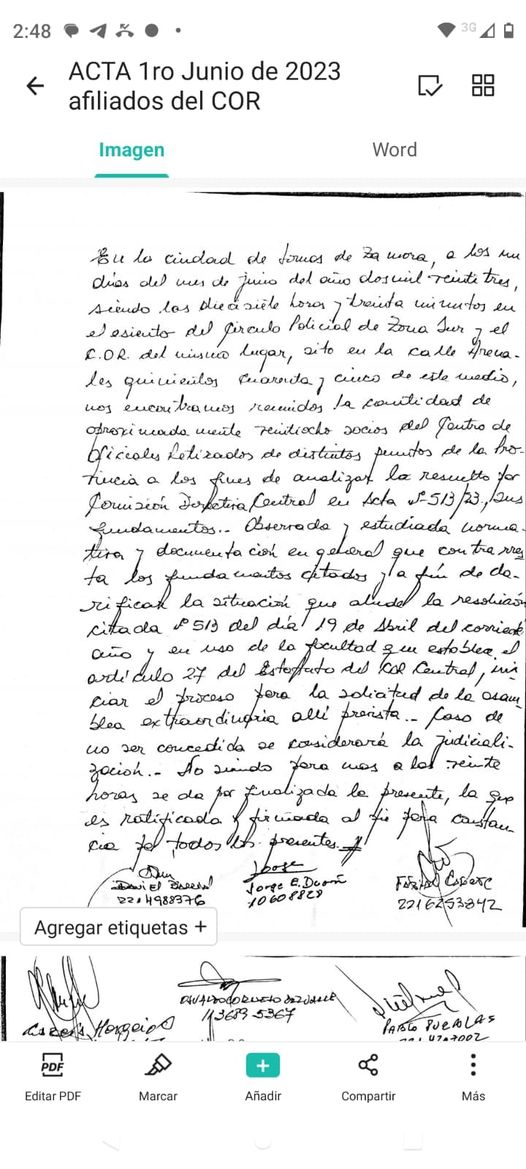 2:48
3G
ACTA 1ro Junio de 2023
afiliados del COR
Imagen
Word
En la ciudad de Lomas de Zamora, a los un
días del mes de junio del año dosmil veinte tres,
siendo las diecisiete horas y treinta minutos en
el asiento del Circulo Policial de Zona Sur y el
C.O.R. del mismo lugar, sito en la calle Arena-
les quinientos cuarenta y cinco de este medio,
nos encontramos reunidos la cantidad de
aproximadamente veintiocho socios del Centro de
Oficiales Retirados de distintos puntos de la Pro-
vincia a los fines de analizar lo resuelto por
Comisión Directiva Central en Acta Nº 513/23, sus
fundamentos.. Observada y estudiada norma-
tiva y documentación en general que contrarres-
ta los fundamentos citados y a fin de cla-
rificar la situación que alude la resolución
citada Nº 513 del día 19 de Abril del corriente
año y en uso de la facultad que establece el
artículo 27 del Estatuto del COR Central, ini-
ciar el proceso para la solicitud de la asam-
blea extraordinaria allí prevista.. Caso de
no ser concedida se considerará la judiciali-
zación.- No siendo para mas a las veinte
horas se da por finalizada la presente, la que
es ratificada y firmada al pie para constan
cia por todos los presentes.
Jorge E.
2214988376
10608828
2216253842
Agregar etiquetas +
1136895367
PABLO
Editar PDF
Marcar
Añadir
Compartir
Más
PDF